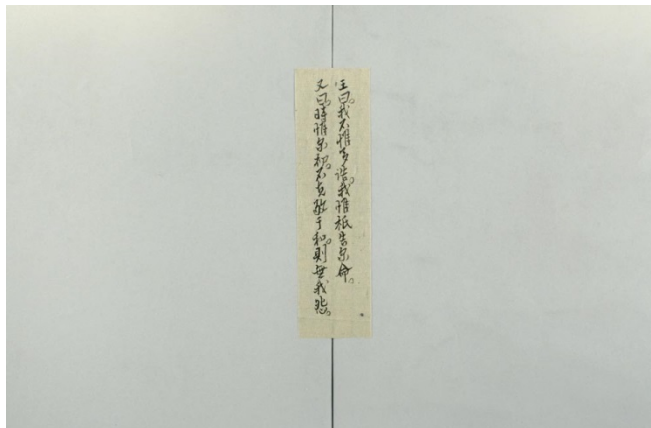 王曰。我不惟多誥。我惟祗告尔命。
又曰。時惟尔初。不克敬于和。則無我怨。